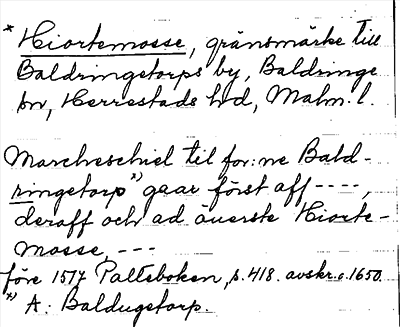 * Hiortemosse, gränsmärke till
Baldringetorps by, Baldringe
sn, Herrestads hd, Malm. l.
Marcheschiel til for:ne Bald-
ringetorp *) gaar först aff ----,
deraff och ad överste Hiorte-
mosse, ---
före 1517 Palteboken, s. 418. avskr. c. 1650.
*) A: Baldugetorp.